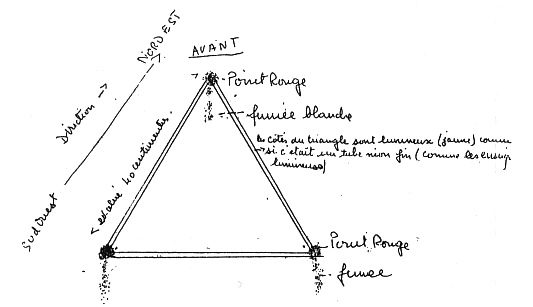 NORD EST
Direction →
Sud Ouest
AVANT
Point Rouge
fumée blanche
les côtés du triangle sont lumineux (jaune) comme
si c'était un tube néon fin (comme les
lumineuses)
évalué 40 centimètres.
Point Rouge
fumée